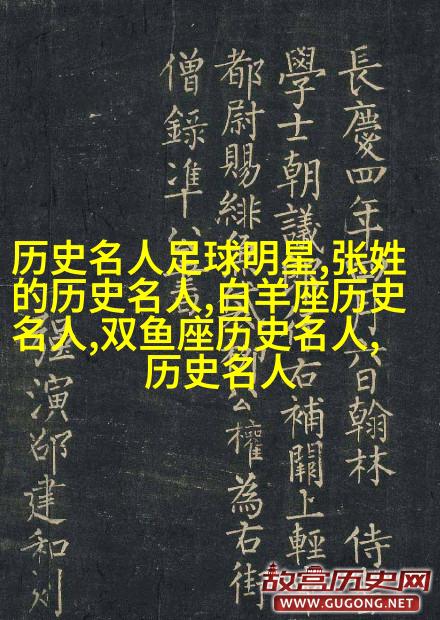 历史名人足球明星,张姓
的历史名人,白羊座历史
名人,双鱼座历史名人,
历史名人
長慶四年 六日翰林 侍
學士朝議 右補闕上輕
都尉賜緋 公權為右街
僧錄准 書
强演邵建和刻
故宫历史网
WWW.GUGONG.NET